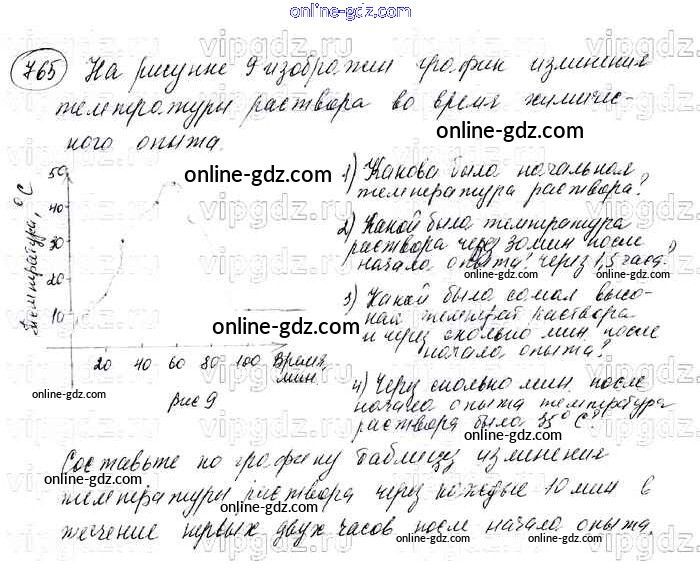 online-gdz.com
765 На рисунке 9 изображен график изменения
температуры раствора во время химичес-
кого опыта.
online-gdz.com
online-gdz.com
Температура, °C
50
40
30
20
10
20 40 60 80 100 Время,
мин.
рис 9
online-gdz.com
online-gdz.com
1) Какова была начальная
температура раствора?
2) Какой была температура
раствора через 30 мин после
начала опыта? через 1,5 часа?
online-gdz.com online-gdz.com
3) Какой была самая высо-
кая температ раствора
и через сколько мин после
начала опыта?
online-gdz.com
4) Через сколько мин после
начала опыта температура
раствора была 35° C?
online-gdz.com
online-gdz.com
Составьте по графику таблицу изменения
температуры раствора через каждые 10 мин в
течение первых двух часов после начала опыта.
online-gdz.com
online-gdz.com
online-gdz.com
vipgdz.ru